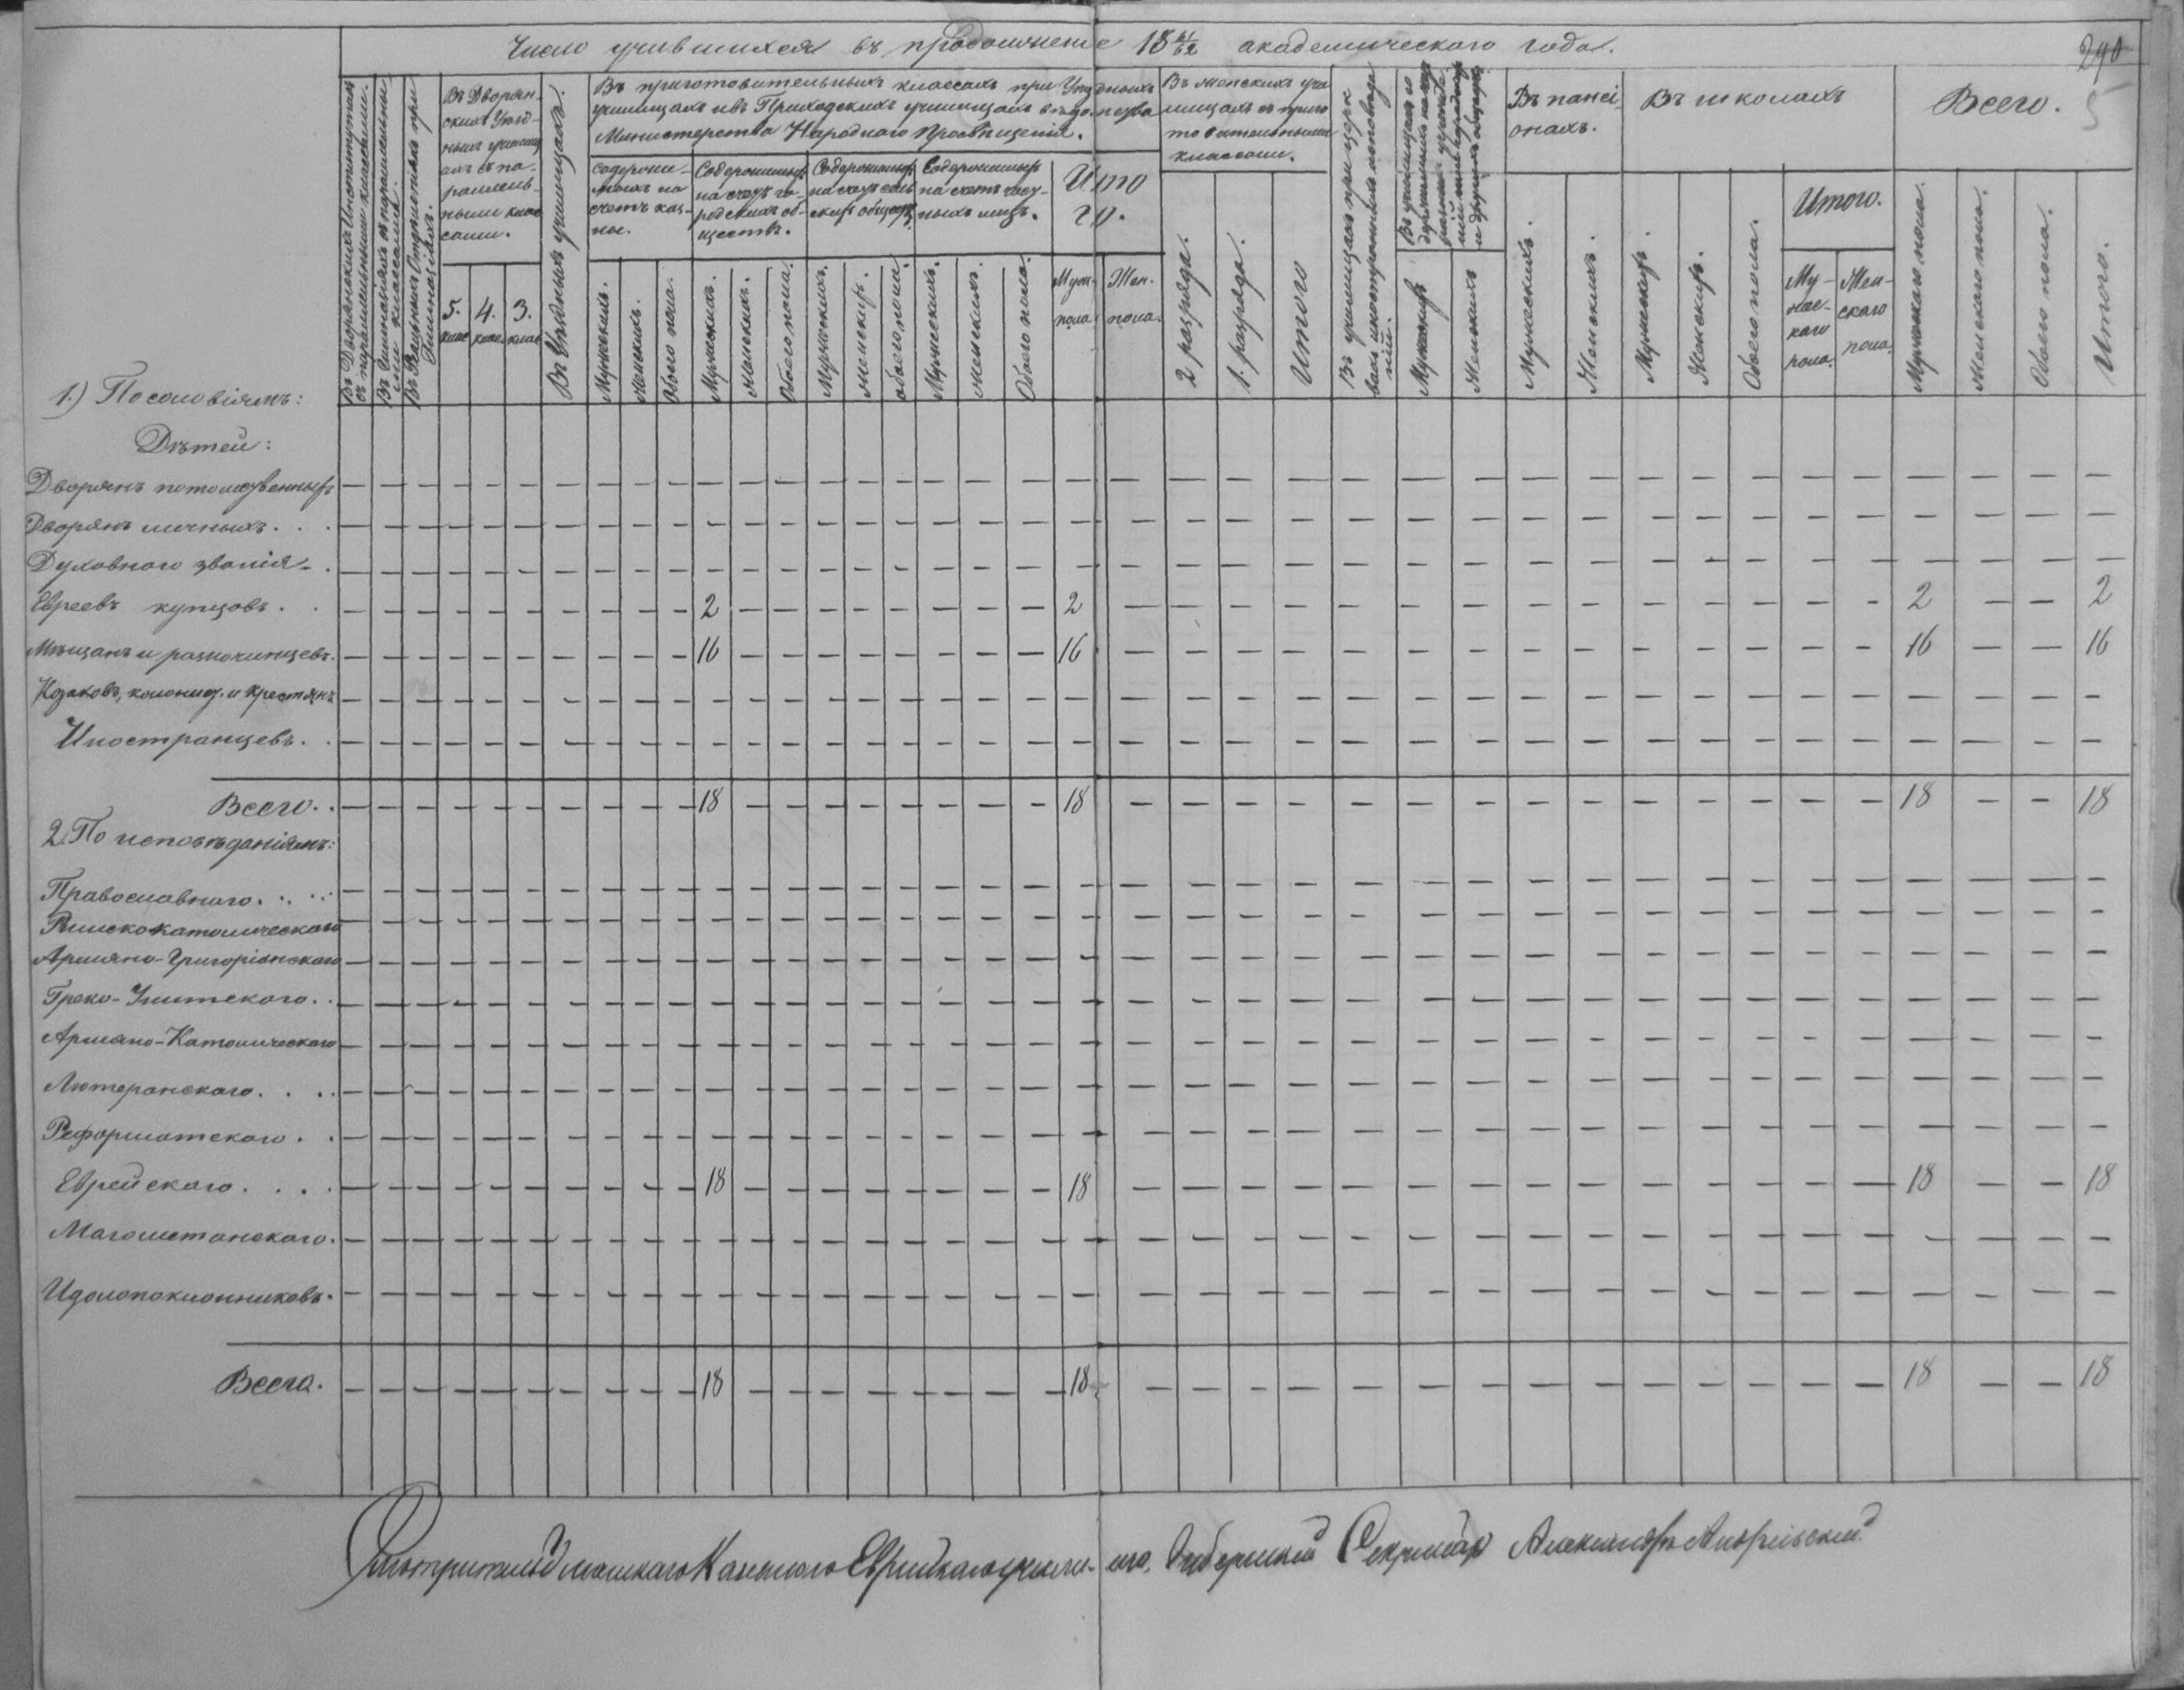 Число учившихся въ продолженіе 18 61/62 академическаго года.
290
5
Въ Дворянскихъ Институтахъ
съ параллельными классами.
Въ Гимназіяхъ съ параллельны
ми классами.
Въ Реальныхъ Отдѣленіяхъ при
Гимназіяхъ.
Въ Дворян-
скихъ Уѣзд-
ныхъ училищ
ахъ съ па-
раллель-
ными клас
сами.
5.
клас
4.
клас.
3.
клас
Въ Уѣздныхъ училищахъ.
Въ приготовительныхъ классахъ при Уѣздныхъ
училищахъ и въ Приходскихъ училищахъ вѣдомства
Министерства Народнаго Просвѣщенія.
Содержи-
мыхъ на
счетъ каз-
ны.
Содержимыхъ
на счетъ го-
родскихъ об-
ществъ.
Содержимыхъ
на счетъ сель
скихъ обществ
Содержимыхъ
на счетъ част-
ныхъ лицъ.
Ито
го.
Мужескихъ.
Женскихъ.
Обоего пола.
Мужескихъ.
Женскихъ.
Обоего пола.
Мужескихъ.
Женскихъ.
обоего пола.
Мужескихъ.
женскихъ.
Обоего пола.
Муж.
пола
Жен.
пола.
Въ женскихъ учи
лищахъ съ приго
товительными
классами.
2 разряда.
1. разряда.
Итого
Въ училищахъ при церк
вахъ иностранныхъ исповѣда
ній.
Мужескихъ
Женскихъ
Въ пансі
онахъ.
Мужескихъ.
Женскихъ.
Въ школахъ
Мужескихъ.
Женскихъ.
Обоего пола.
Итого.
Му-
жес-
каго
пола.
Жен-
скаго
пола.
Всего.
Мужескаго пола.
Женскаго пола.
Обоего пола.
Итого.
1.) По сословіямъ:
Дѣтей:
Дворянъ потомственныхъ — — — — — — — — — — — — — — — — — — — — — — — — — — — — — — — — — — — — — — —
Дворянъ личныхъ. . . — — — — — — — — — — — — — — — — — — — — — — — — — — — — — — — — — — — — — — —
Духовнаго званія. . — — — — — — — — — — — — — — — — — — — — — — — — — — — — — — — — — — — — — — —
Евреевъ купцовъ. . — — — — — — — — — — 2 — — — — — — — — 2 — — — — — — — — — — — — — — — 2 — — 2
Мѣщанъ и разночинцевъ. — — — — — — — — — — 16 — — — — — — — — 16 — — — — — — — — — — — — — — — 16 — — 16
Козаковъ, колонист. и крестьянъ — — — — — — — — — — — — — — — — — — — — — — — — — — — — — — — — — — — — — — —
Иностранцевъ. . — — — — — — — — — — — — — — — — — — — — — — — — — — — — — — — — — — — — — — —
Всего. . — — — — — — — — — — 18 — — — — — — — — 18 — — — — — — — — — — — — — — — 18 — — 18
2. По исповѣданіямъ:
Православнаго. . . . — — — — — — — — — — — — — — — — — — — — — — — — — — — — — — — — — — — — — — —
Римско-католическаго — — — — — — — — — — — — — — — — — — — — — — — — — — — — — — — — — — — — — — —
Армяно-Григоріанскаго — — — — — — — — — — — — — — — — — — — — — — — — — — — — — — — — — — — — — — —
Греко-Унитскаго. . — — — — — — — — — — — — — — — — — — — — — — — — — — — — — — — — — — — — — — —
Армяно-Католическаго — — — — — — — — — — — — — — — — — — — — — — — — — — — — — — — — — — — — — — —
Лютеранскаго. . . . — — — — — — — — — — — — — — — — — — — — — — — — — — — — — — — — — — — — — — —
Реформатскаго. . — — — — — — — — — — — — — — — — — — — — — — — — — — — — — — — — — — — — — — —
Еврейскаго. . . . — — — — — — — — — — 18 — — — — — — — — 18 — — — — — — — — — — — — — — — 18 — — 18
Магометанскаго. — — — — — — — — — — — — — — — — — — — — — — — — — — — — — — — — — — — — — — —
Идолопоклонниковъ. — — — — — — — — — — — — — — — — — — — — — — — — — — — — — — — — — — — — — — —
Всего. — — — — — — — — — — 18 — — — — — — — — 18 — — — — — — — — — — — — — — — 18 — — 18
Смотритель Казеннаго Еврейскаго училища, Губернскій Секретарь